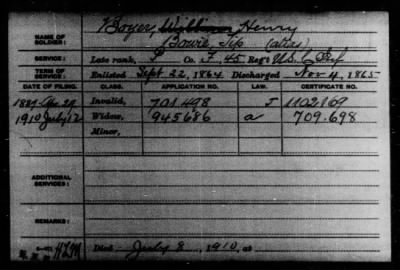 NAME OF SOLDIER: Boyer, William Henry
Bowie, Tip (alias)
SERVICE: Late rank, P Co. F, 45 Reg't U.S.C. Inf
TERM OF SERVICE: Enlisted Sept 22, 1864 Discharged Nov 4, 1865
DATE OF FILING. CLASS. APPLICATION NO. LAW. CERTIFICATE NO.
1889 29 Invalid, 701498 J 1102869
1910 July 12 Widow, 945686 a 709.698
Minor,
ADDITIONAL SERVICES:
REMARKS:
Died July 8, 1910, at